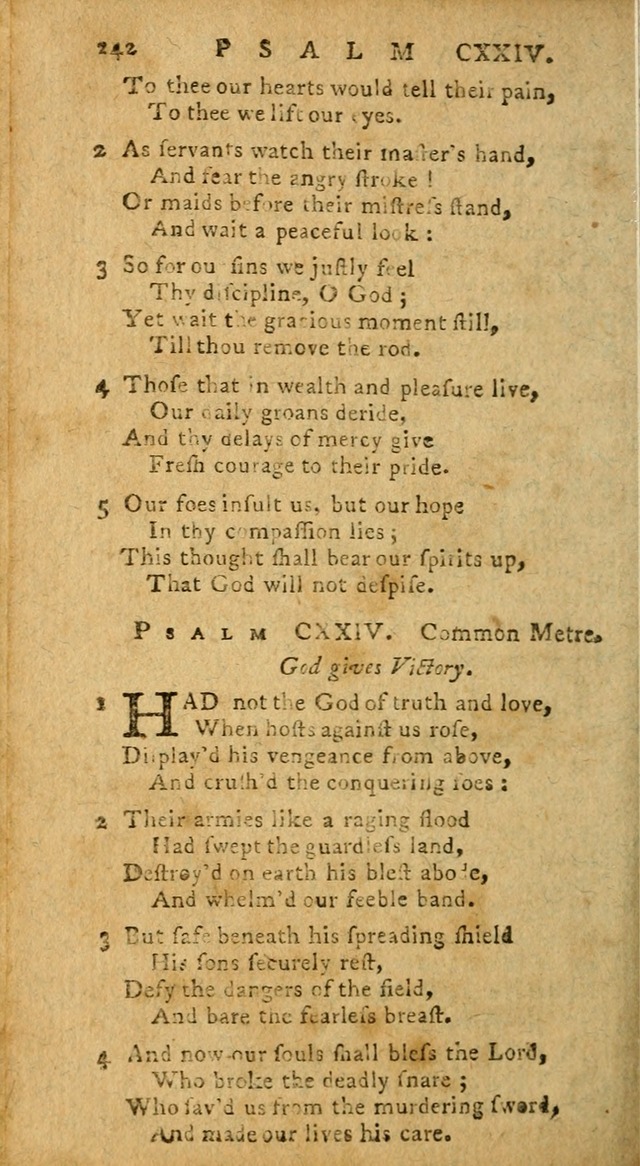 242 PSALM CXXIV.
To thee our hearts would tell their pain,
To thee we lift our eyes.
2 As ſervants watch their maſter's hand,
And fear the angry ſtroke !
Or maids before their miſtreſs ſtand,
And wait a peaceful look :
3 So for our ſins we juſtly feel
Thy diſcipline, O God ;
Yet wait the gracious moment ſtill,
Till thou remove the rod.
4 Thoſe that in wealth and pleaſure live,
Our daily groans deride,
And thy delays of mercy give
Freſh courage to their pride.
5 Our foes inſult us, but our hope
In thy compaſſion lies ;
This thought ſhall bear our ſpirits up,
That God will not deſpiſe.
PSALM CXXIV. Common Metre.
God gives Victory.
1 HAD not the God of truth and love,
When hoſts againſt us roſe,
Diſplay'd his vengeance from above,
And cruſh'd the conquering foes :
2 Their armies like a raging flood
Had ſwept the guardleſs land,
Deſtroy'd on earth his bleſt abode,
And whelm'd our feeble band.
3 But ſafe beneath his ſpreading ſhield
His ſons ſecurely reſt,
Defy the dangers of the field,
And bare the fearleſs breaſt.
4 And now our ſouls ſhall bleſs the Lord,
Who broke the deadly ſnare ;
Who ſav'd us from the murdering ſword,
And made our lives his care.